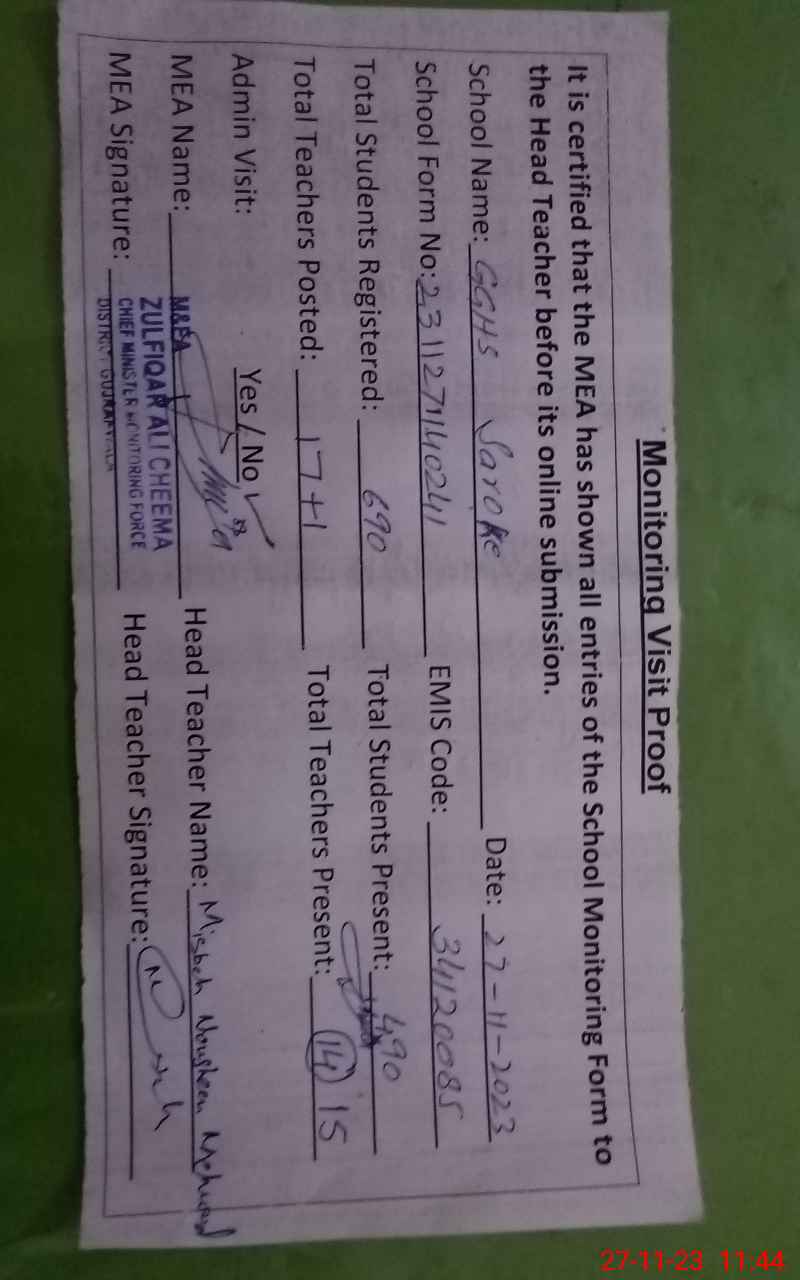 Monitoring Visit Proof
It is certified that the MEA has shown all entries of the School Monitoring Form to
the Head Teacher before its online submission.
School Name: GGHS Saroke Date: 27-11-2023
School Form No: 2311271140241 EMIS Code: 34120085
Total Students Registered: 690 Total Students Present: 490
Total Teachers Posted: 17+1 Total Teachers Present: 14 15
Admin Visit: Yes / No ✓
MEA Name: Head Teacher Name: Misbah Nousheen Mehmood
MEA Signature: Head Teacher Signature:
M&EA
ZULFIQAR ALI CHEEMA
CHIEF MINISTER MONITORING FORCE
DISTRICT GUJRANWALA
27-11-23 11:44